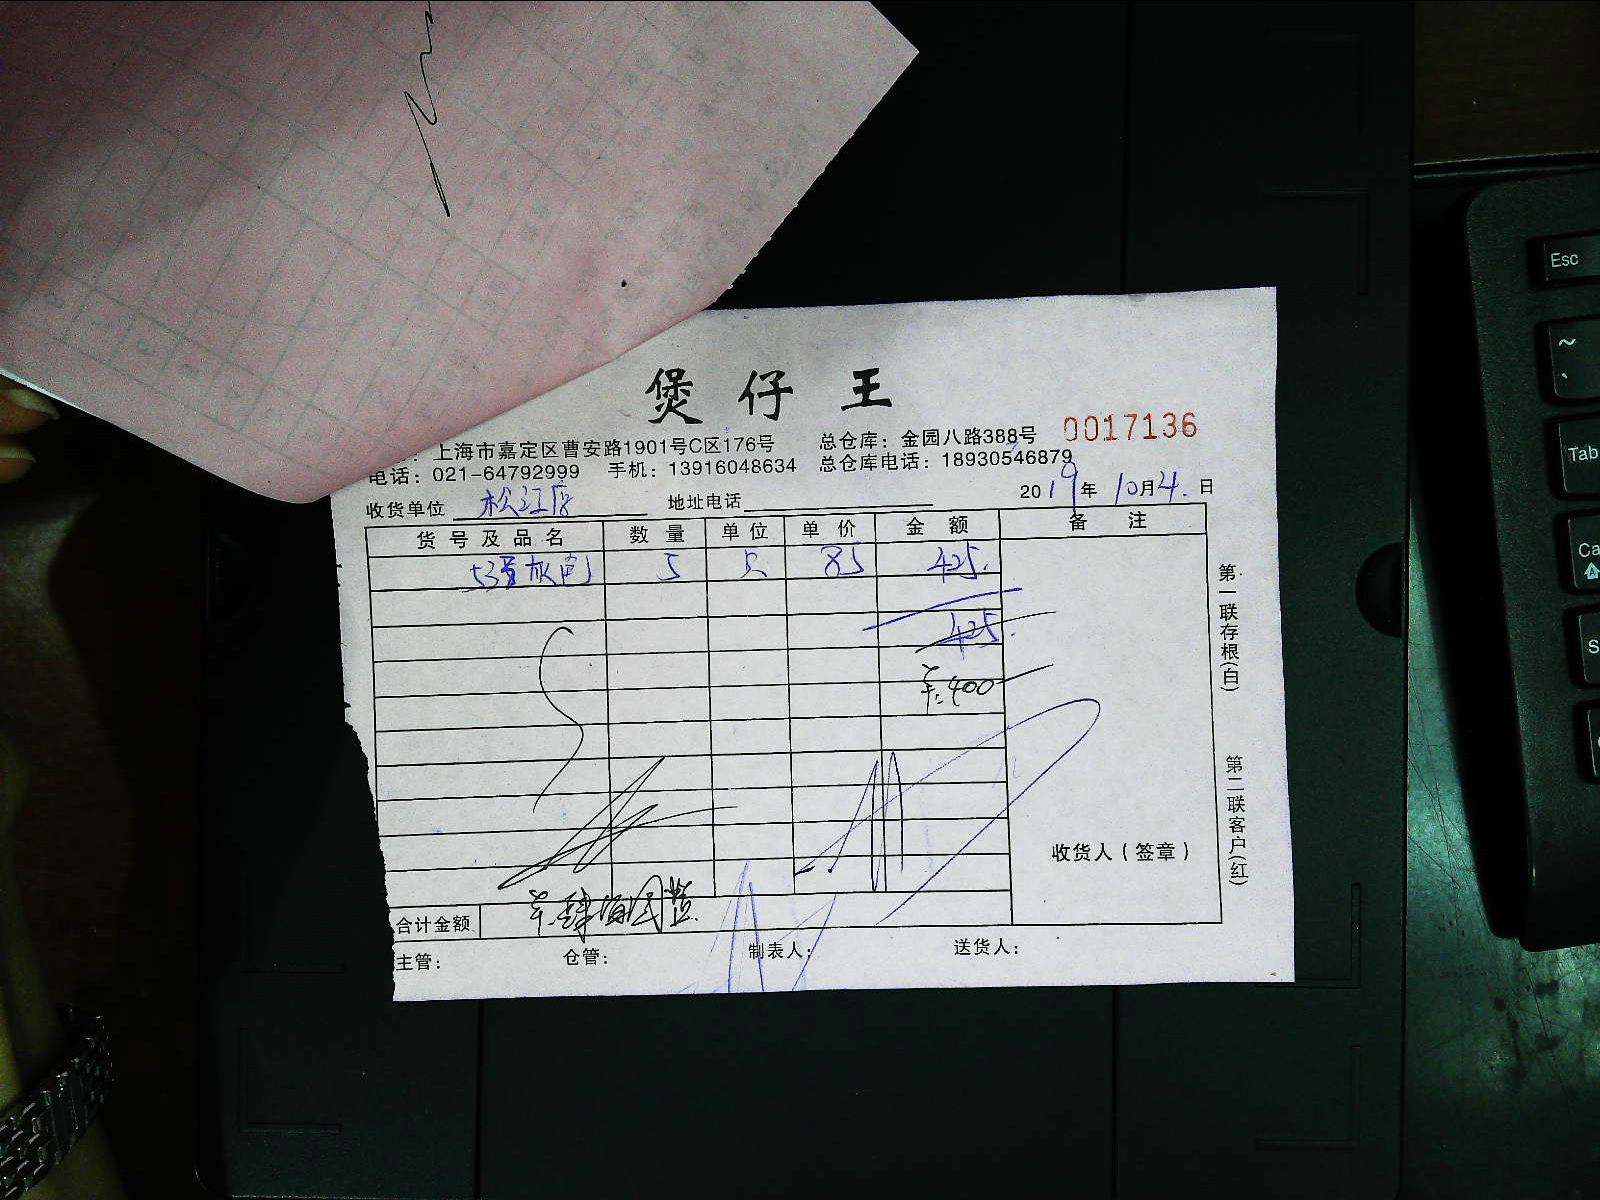 煲仔王
上海市嘉定区曹安路1901号C区176号 总仓库：金园八路388号 0017136
电话：021-64792999 手机：13916048634 总仓库电话：18930546879
收货单位 松江店 地址电话 2019年10月4日
货号及品名 数量 单位 单价 金额 备注
53 5 只 85 425.
425.
¥:400
收货人（签章）
合计金额 肆佰
主管： 仓管： 制表人： 送货人：
第一联存根(白)
第二联客户(红)
Esc
~
Tab
Ca
S